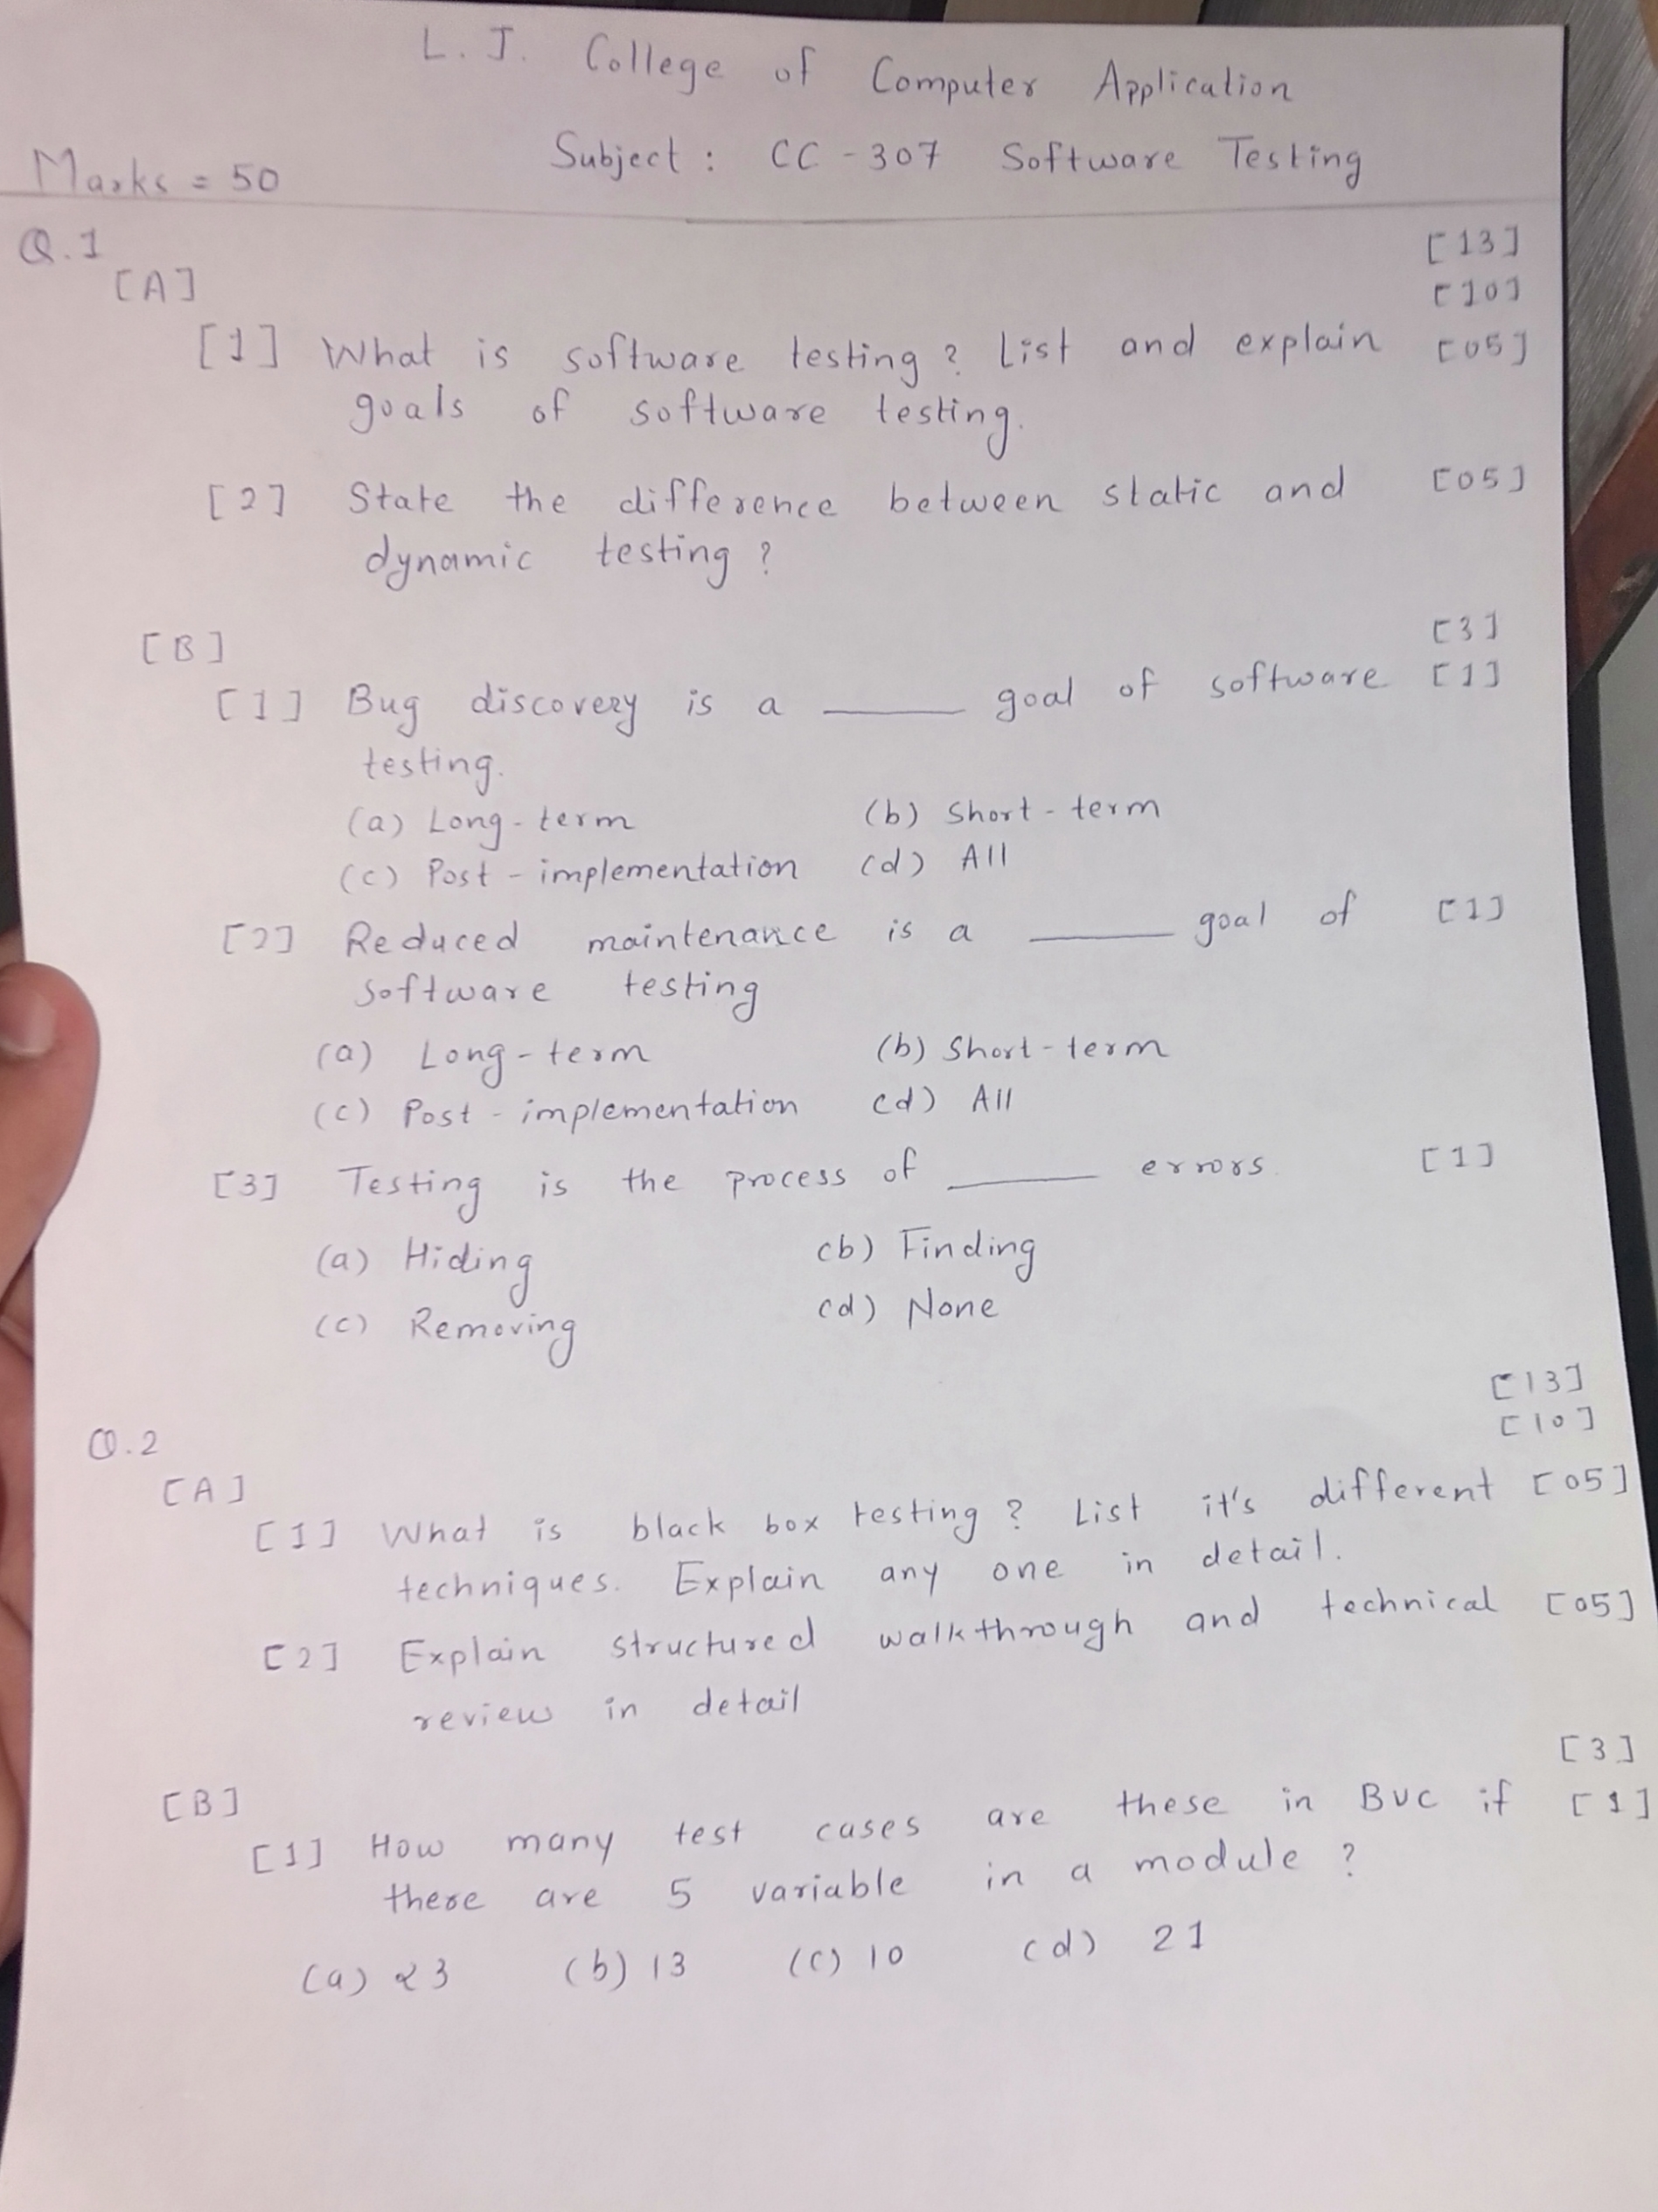 L. J. College of Computer Application
Subject : CC - 307 Software Testing
Marks = 50
Q.1 [13]
[A] [10]
[1] What is software testing? List and explain [05]
goals of software testing.
[2] State the difference between static and [05]
dynamic testing ?
[B] [3]
[1] Bug discovery is a ______ goal of software [1]
testing.
(a) Long-term (b) Short-term
(c) Post-implementation (d) All
[2] Reduced maintenance is a ______ goal of [1]
Software testing
(a) Long-term (b) Short-term
(c) Post-implementation (d) All
[3] Testing is the process of ______ errors. [1]
(a) Hiding (b) Finding
(c) Removing (d) None
[13]
Q.2 [10]
[A]
[1] What is black box testing ? List it's different [05]
techniques. Explain any one in detail.
[2] Explain structured walkthrough and technical [05]
review in detail
[3]
[B]
[1] How many test cases are these in BVC if [1]
there are 5 variable in a module ?
(a) 23 (b) 13 (c) 10 (d) 21